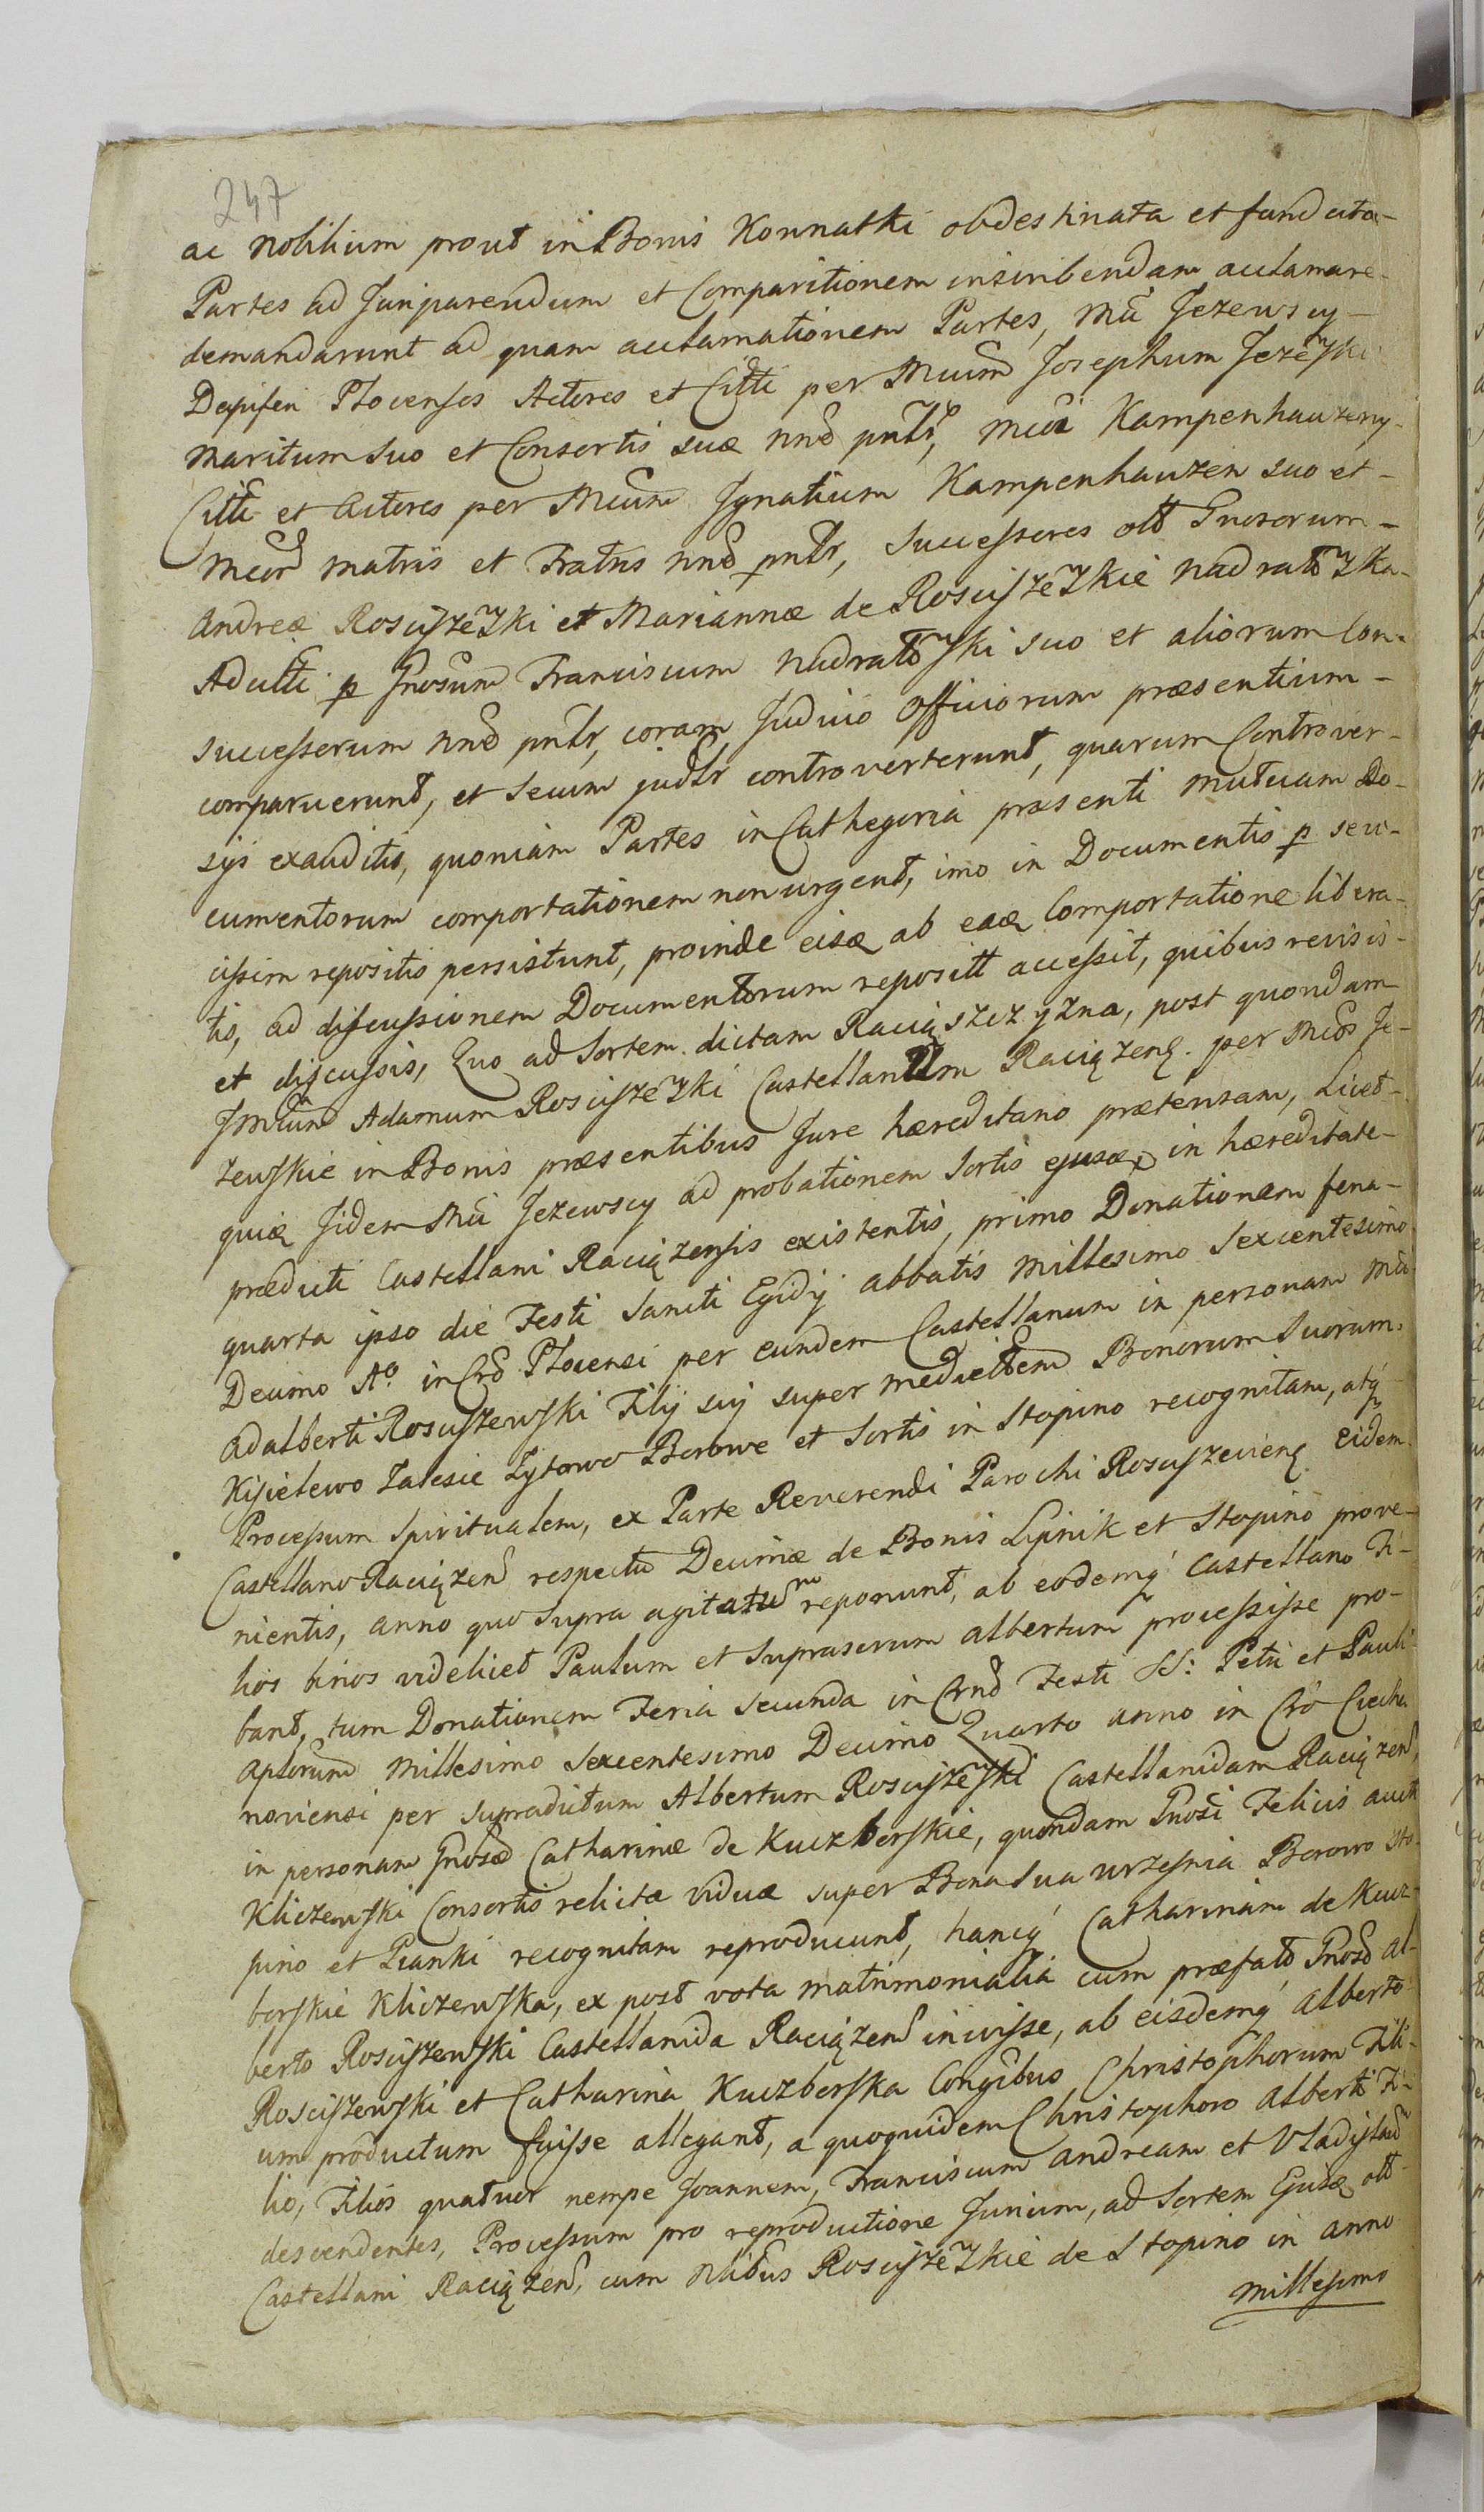 247
ac Nobilium prout in Bonis Konnatki obdestinata et fundata
Partes ad Juriparendum et Comparitionem inscribendam acclamare
demandarunt ad quam acclamationem Partes, Mci Jezewscy
Dapiferi Plocenses Actores et Citti per Mcum Josephum Jezewski
Maritum suo et Consortis suæ nnē pntr, Mci Kampenhauzeny
Citti et Actores per Mcum Ignatium Kampenhauzen suo et
Mcor Matris et Fratris nnē pntr, Successores olt Gnosorum
Andreæ Rosciszewski et Mariannæ de Rosciszewskie Nadratowska
Adcitti p Gnosum Franciscum Nadratowski suo et aliorum Con-
successorum nnē pntr, coram Judicio Officiorum præsentium
comparuerunt, et secum judlr controverterunt, quarum Controver-
sijs exauditis, quoniam Partes in Cathegoria præsenti mutuam Do-
cumentorum comportationem non urgent, imo in Documentis p sew-
cissim repositis persistunt, proinde eisq ab eaq Comportatione libera-
tis, ad discussionem Documentorum repositt accessit, quibus revisis
et discussis, Quo ad Sortem dictam Raciązczyzna, post quondam
Jmcum Adamum Rosciszewski Castellanum Raciązens. per Mcos Je-
zewskie in Bonis præsentibus Jure hæreditario prætensam, Licet
quia Jidem Mci Jezewscy ad probationem Sortis ejusq in hæreditate
prædicti Castellani Raciązensis existentis, primo Donationem feria
quarta ipso die Festi Sancti Egidij Abbatis Millesimo Sexcentesimo
Decimo Aº in Crō Plocensi per eundem Castellanum in personam Mci
Adalberti Rosciszewski Filij sui super medietatem Bonorum Suorum
Kisielewo Zalesie Zytowo Borowe et Sortis in Stopino recognitam, atq
Processum Spiritualem, ex Parte Reverendi Parochi Rosciszeviens eidem
Castellano Raciązens respectu Decimæ de Bonis Lipnik et Stopino prove-
nientis, anno quo supra agitatum reponunt, ab eodemq Castellano Fi-
lios binos videlicet Paulum et Suprascrum Albertum processisse pro-
bant, tum Donationem Feria Secunda in Crnō Festi SS: Petri et Pauli
Aplorum Millesimo Sexcentesimo Decimo Quarto anno in Crō Ciecha
noviensi per supradictum Albertum Rosciszewski Castellanidam Raciązens,
in personam Gnosæ Catharinæ de Kuczborskie, quondam Gnosi Felicis
Kliczewski Consortis relictæ viduæ super Bona sua Wrzesnia Borowo Sto-
pino et Pianki recognitam reproducunt, hancq Catharinam de Kucz-
borskie Kliczewska, ex post vota matrimonialia cum præfato Gnoso Al-
berto Rosciszewski Castellanida Raciązens inivisse, ab eisdemq Alberto
Rosciszewski et Catharina Kuczborska Congibus Christophorum Fili-
um productum fuisse allegant, a quoquidem Christophoro Alberti Fi-
lio, Filios quatuor nempe Joannem, Franciscum Andream et Vladislaum
descendentes, Processum pro reproductione Jurium, ad Sortem Ejusq olt
Castellani Raciązens, cum Nlibus Rosciszewskie de Stopino in anno
Millesimo